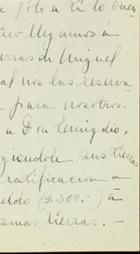 a solo a ti lo cuen
ico llegamos á
erras de Miguel
al nos las reserva
para nosotros.
a Don Emigdio,
giendole sus tierras
ratificacion á
eldo (£300.-) á
smas tierras. -